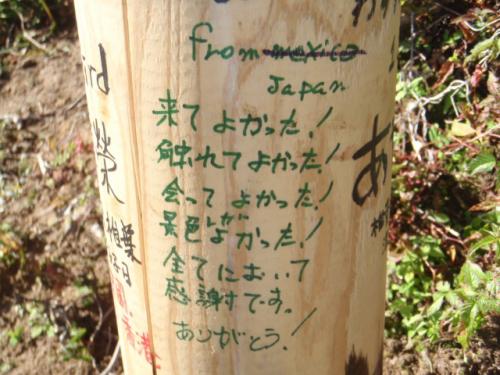 from mexico
Japan
来てよかった!
触れてよかった!
会ってよかった!
景色がよかった!
全てにおいて
感謝です。
ありがとう!
ird
榮
相葉
香港
あ